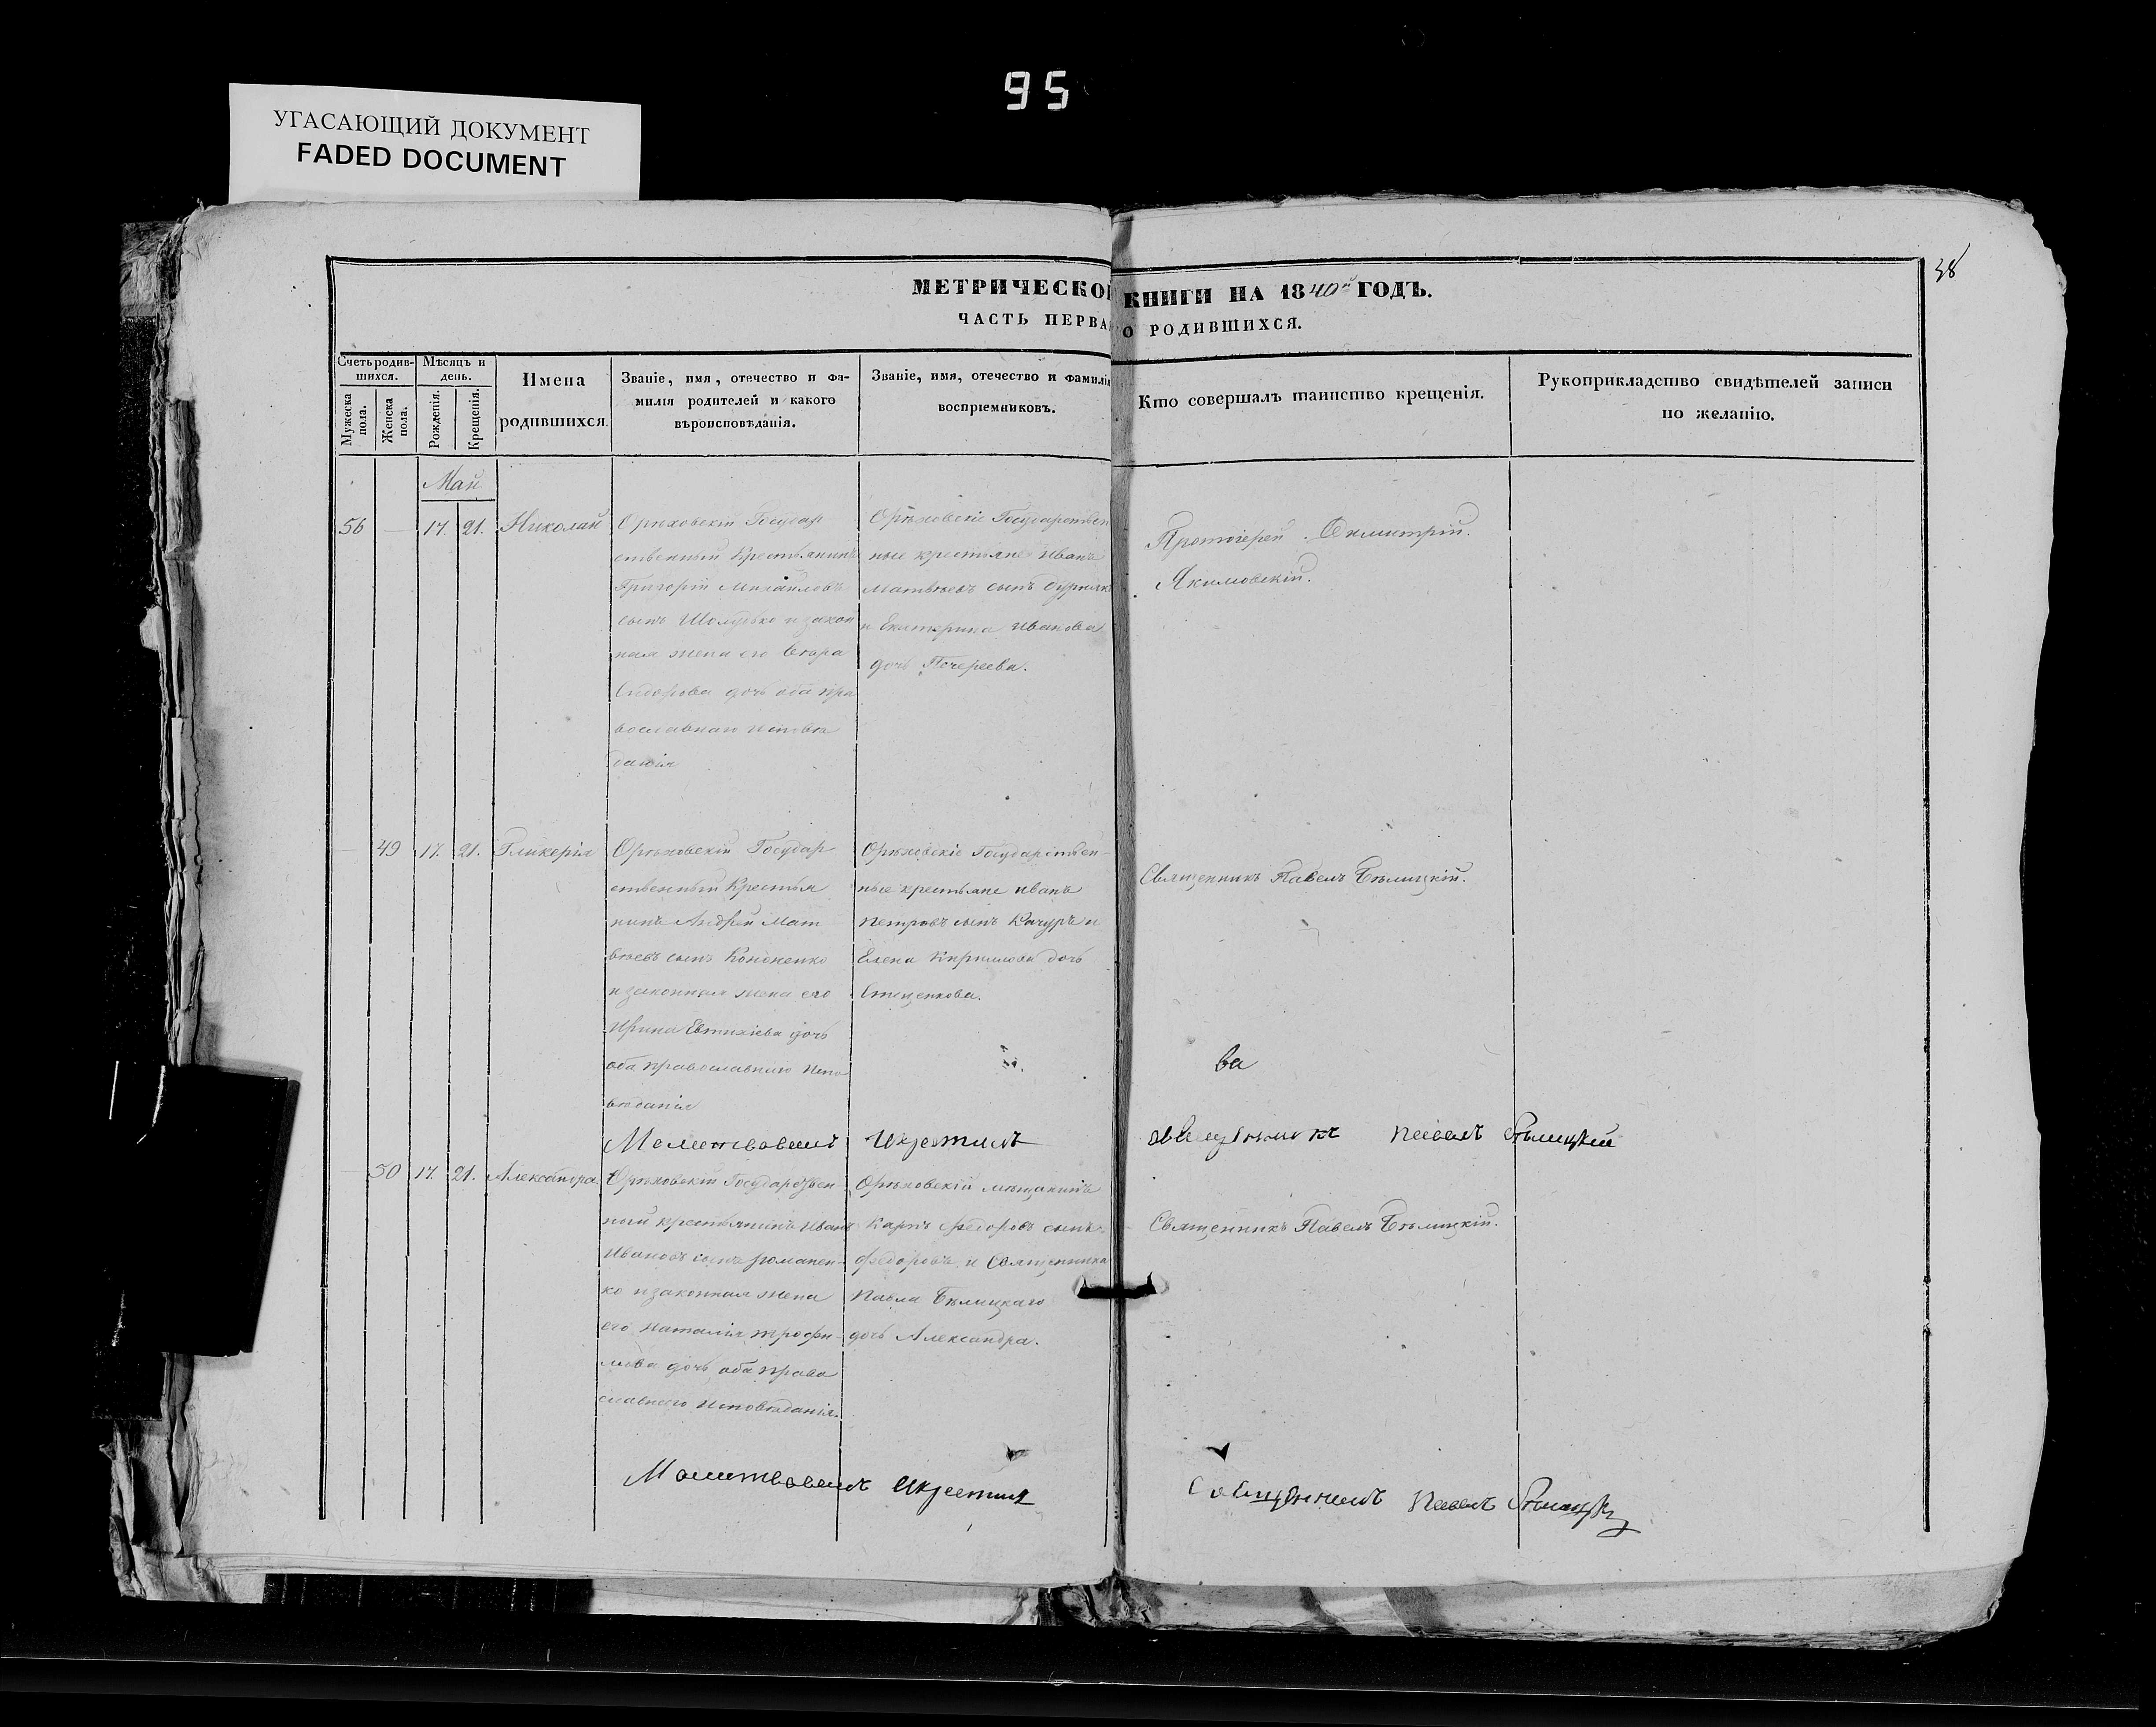 95
УГАСАЮЩИЙ ДОКУМЕНТ
FADED DOCUMENT
38
МЕТРИЧЕСКО КНИГИ НА 1840й ГОДЪ.
ЧАСТЬ ПЕРВА О РОДИВШИХСЯ.
Счетъ родив-
шихся.
Мужеска
пола.
Женска
пола.
Мѣсяцъ и
день.
Рожденія.
Крещенія.
Имена
родившихся.
Званіе, имя, отечество и фа-
милія родителей и какого
вѣроисповѣданія.
Званіе, имя, отечество и фамилія
воспріемниковъ.
Кто совершалъ таинство крещенія.
Рукоприкладство свидѣтелей записи
по желанію.
Май
56 — 17. 21. Николай
Орѣховскій Государ
ственный Крестьянинъ
Григорій Михайловъ
сынъ и закон
ная жена его
Сидорова дочь оба пра
вославнаго исповѣ
данія
Орѣховскіе Государствен
ные крестьяне Иванъ
Матвѣевъ сынъ
и Екатерина Иванова
дочь
Протоіерей Димитрій
Якимовскій.
— 49 17. 21. Гликерія
Орѣховскій Государ
ственный Крестья
нинъ Андрей Мат
вѣевъ сынъ Кононенко
и законная жена его
Ирина Евтихіева дочь
оба православнаго испо
вѣданія
Орѣховскіе Государствен-
ные крестьяне Иванъ
Петровъ сынъ Качуръ и
Елена Кирилова дочь
Священникъ Павелъ Бѣлицкій.
ва
Молитвовалъ и крестилъ священникъ Павелъ Бѣлицкій
— 50 17. 21. Александра
Орѣховскій Государствен
ный крестьянинъ Иванъ
Ивановъ сынъ Романен-
ко и законная жена
его Наталія Трофи-
мова дочь оба право
славнаго исповѣданія.
Орѣховскій мѣщанинъ
Карпъ Федоровъ сынъ
Федоровъ, и Священника
Павла Бѣлицкаго
дочь Александра.
Священникъ Павелъ Бѣлицкій.
Молитвовалъ и крестилъ Священникъ Павелъ